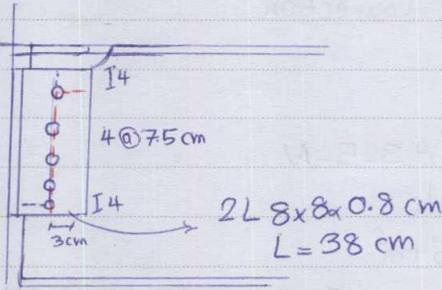 I4
4@7.5 cm
I4
3cm
2L 8x8x0.8 cm
L = 38 cm